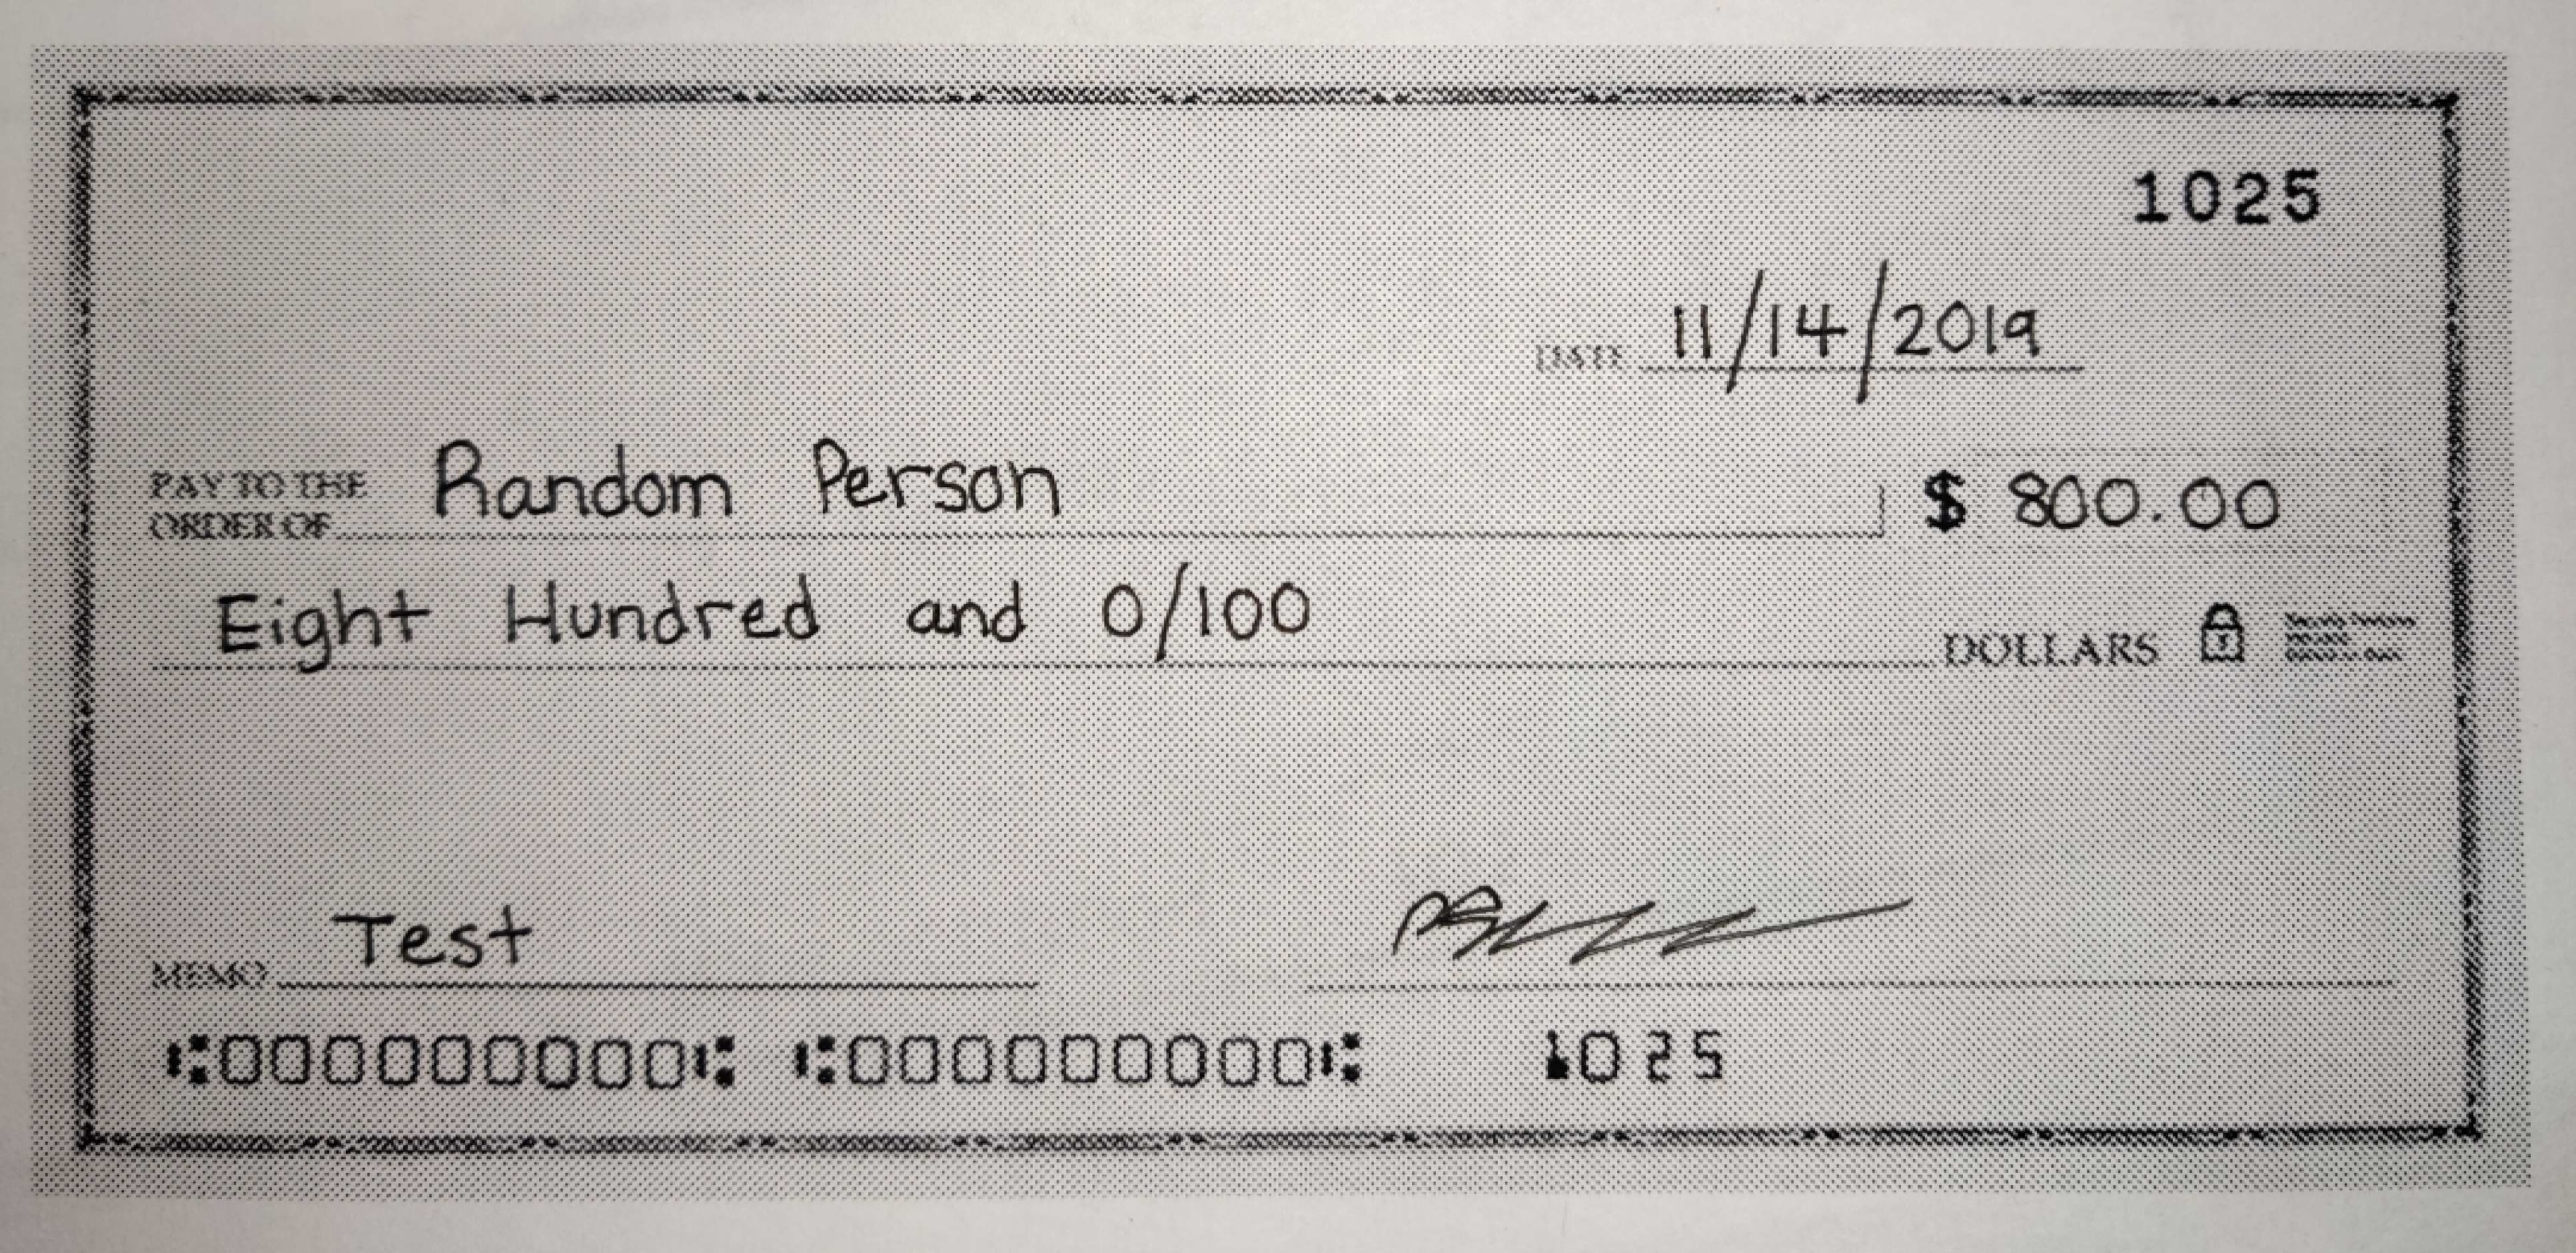 1025
DATE 11/14/2019
PAY TO THE
ORDER OF Random Person $ 800.00
Eight Hundred and 0/100 DOLLARS
MEMO Test
⑆000000000⑆ ⑆000000000⑆ 1025